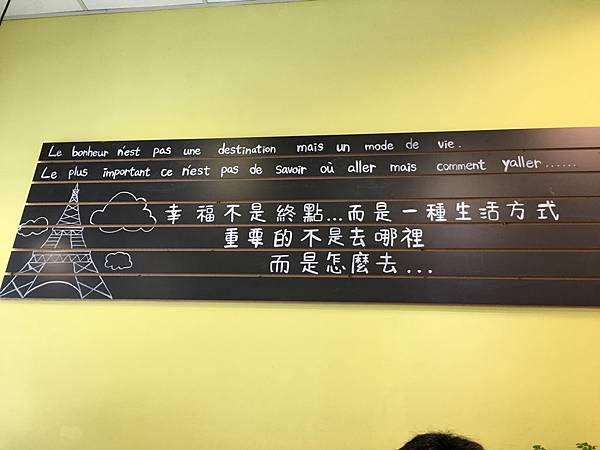 Le bonheur n'est pas une destination mais un mode de vie.
Le plus important ce n'est pas de savoir où aller mais comment yaller......
幸福不是終點...而是一種生活方式
重要的不是去哪裡
而是怎麼去...